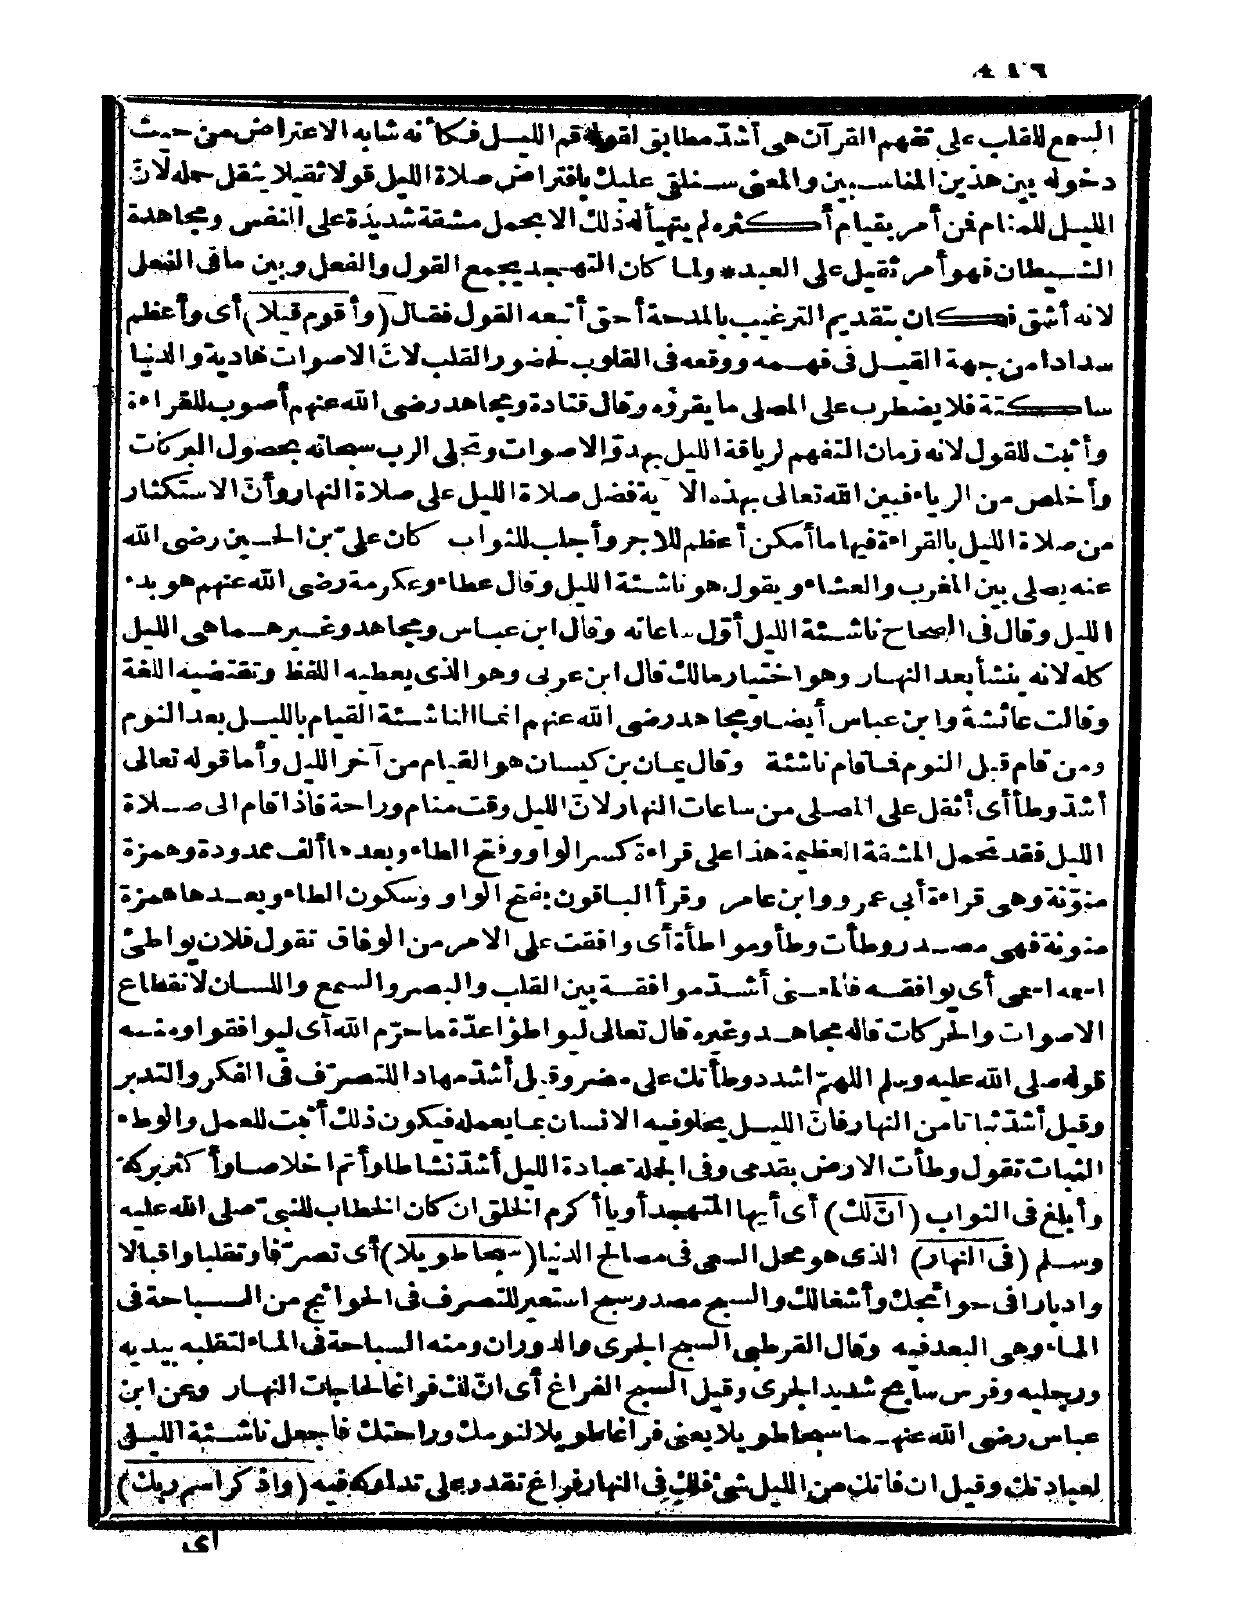 ٤١٦
السمع للقلب على تفهم القرآن هى أشدّ مطابق لقوله قم الليل فكأنه شابه الاعتراض من حيث
دخوله بين هذين المناسبين والمعنى سنلقى عليك بافتراض صلاة الليل قولا ثقيلا يثقل حمله لانّ
الليل للمنام فمن أمر بقيام أكثره لم يتهيأ له ذلك الا بحمل مشقة شديدة على النفس ومجاهدة
الشيطان فهو أمر ثقيل على العبد * ولما كان التهجد يجمع القول والفعل وبين ما فى الفعل
لانه أشق فكان بتقديم الترغيب بالمدحة أحق أتبعه القول فقال (وأقوم قيلا) أى وأعظم
سدادا من جهة القيل فى فهمه ووقعه فى القلوب لحضور القلب لانّ الاصوات هادية والدنيا
ساكتة فلا يضطرب على المصلى ما يقرؤه وقال قتادة ومجاهد رضى الله عنهم أصوب للقراءة
وأثبت للقول لانه زمان التفهم لرياقة الليل بهدوّ الاصوات وتجلى الرب سبحانه بحصول البركات
وأخلص من الرياء فبين الله تعالى بهذه الآية فضل صلاة الليل على صلاة النهار وأنّ الاستكثار
من صلاة الليل بالقراءة فيها ما أمكن أعظم للاجر وأجلب للثواب كان علىّ بن الحسين رضى الله
عنه يصلى بين المغرب والعشاء ويقول هو ناشئة الليل وقال عطاء وعكرمة رضى الله عنهم هو بدء
الليل وقال فى الصحاح ناشئة الليل أوّل ساعاته وقال ابن عباس ومجاهد وغيرهما هى الليل
كله لانه ينشأ بعد النهار وهو اختيار مالك قال ابن عربى وهو الذى يعطيه اللفظ وتقتضيه اللغة
وقالت عائشة وابن عباس أيضا ومجاهد رضى الله عنهم انما الناشئة القيام بالليل بعد النوم
ومن قام قبل النوم فما قام ناشئة وقال يمان بن كيسان هو القيام من آخر الليل وأما قوله تعالى
أشدّ وطأ أى أثقل على المصلى من ساعات النهار لانّ الليل وقت منام وراحة فاذا قام الى صلاة
الليل فقد تحمل المشقة العظيمة هذا على قراءة كسر الواو وفتح الطاء وبعدها ألف ممدودة وهمزة
منوّنة وهى قراءة أبى عمرو وابن عامر وقرأ الباقون بفتح الواو وسكون الطاء وبعدها همزة
منونة فهى مصدر وطأت وطأ ومواطأة أى وافقت على الامر من الوفاق تقول فلان يواطئ
اسمه اسمى أى يوافقه فالمعنى أشدّ موافقة بين القلب والبصر والسمع واللسان لانقطاع
الاصوات والحركات قاله مجاهد وغيره قال تعالى ليواطؤا عدّة ما حرّم الله أى ليوافقوا ومنه
قوله صلى الله عليه وسلم اللهمّ اشدد وطأتك على مضر وقيل أشدّ مهادا للتصرّف فى الفكر والتدبر
وقيل أشدّ ثباتا من النهار فانّ الليل يخلو فيه الانسان بما يعمله فيكون ذلك أثبت للعمل والوطء
الثبات تقول وطأت الارض بقدمى وفى الجملة عبادة الليل أشدّ نشاطا وأتم اخلاصا وأكثر بركة
وأبلغ فى الثواب (انّ لك) أى أيها المتهجد أو يا أكرم الخلق ان كان الخطاب للنبىّ صلى الله عليه
وسلم (فى النهار) الذى هو محل السعى فى مصالح الدنيا (سبحا طويلا) أى تصرّفا وتقلبا واقبالا
وادبارا فى حوائجك وأشغالك والسبح مصدر وسبح استعير للتصرف فى الحوائج من السباحة فى
الماء وهى البعد فيه وقال القرطبى السبح الجرى والدوران ومنه السباحة فى الماء لتقلبه بيديه
ورجليه وفرس سابح شديد الجرى وقيل السبح الفراغ أى انّ لك فراغا لحاجات النهار وعن ابن
عباس رضى الله عنهما سبحا طويلا يعنى فراغا طويلا لنومك وراحتك فاجعل ناشئة الليل
لعبادتك وقيل ان فاتك من الليل شئ فلك فى النهار فراغ تقدر على تداركه فيه (واذكر اسم ربك)
أى